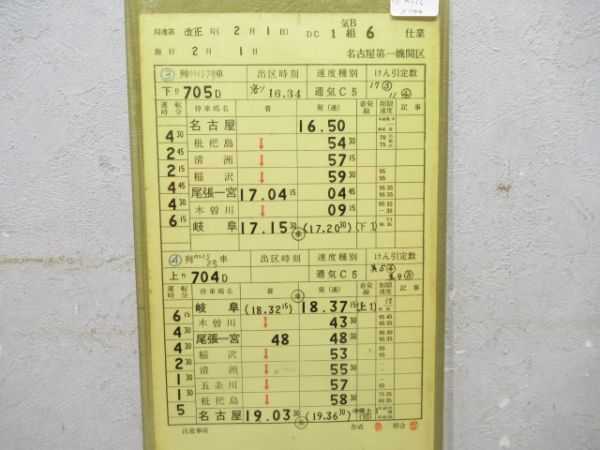 局達第 改正 号(2月1日) DC 1 気B組 6 仕業
施行 2月1日 名古屋第一機関区
③ 列 車 出区時刻 速度種別 けん引定数
下り 705D 16.34 通気C5 17③ 11④
運転時分 停車場名 着 発(通) 着発線 制限速度 記事
名古屋 16.50
4 30 枇杷島 ↓ 54 30
2 45 清洲 ↓ 57 15
2 15 稲沢 ↓ 59 30
4 45 尾張一宮 17.04 15 04 45
4 30 木曽川 ↓ 09 15
6 15 岐阜 17.15 30 (17.20 30) (下1)
④ 列 車 出区時刻 速度種別 けん引定数
上り 704D 通気C5
運転時分 停車場名 着 発(通) 着発線 制限速度 記事
岐阜 (18.32 15) 18.37 15 (上1)
6 15 木曽川 ↓ 43 30
4 30 尾張一宮 48 48 30
4 30 稲沢 ↓ 53
2 30 清洲 ↓ 55 30
1 30 五条川 ↓ 57
1 30 枇杷島 ↓ 58 30
5 名古屋 19.03 30 (19.36 30)
注意事項 作成 照合